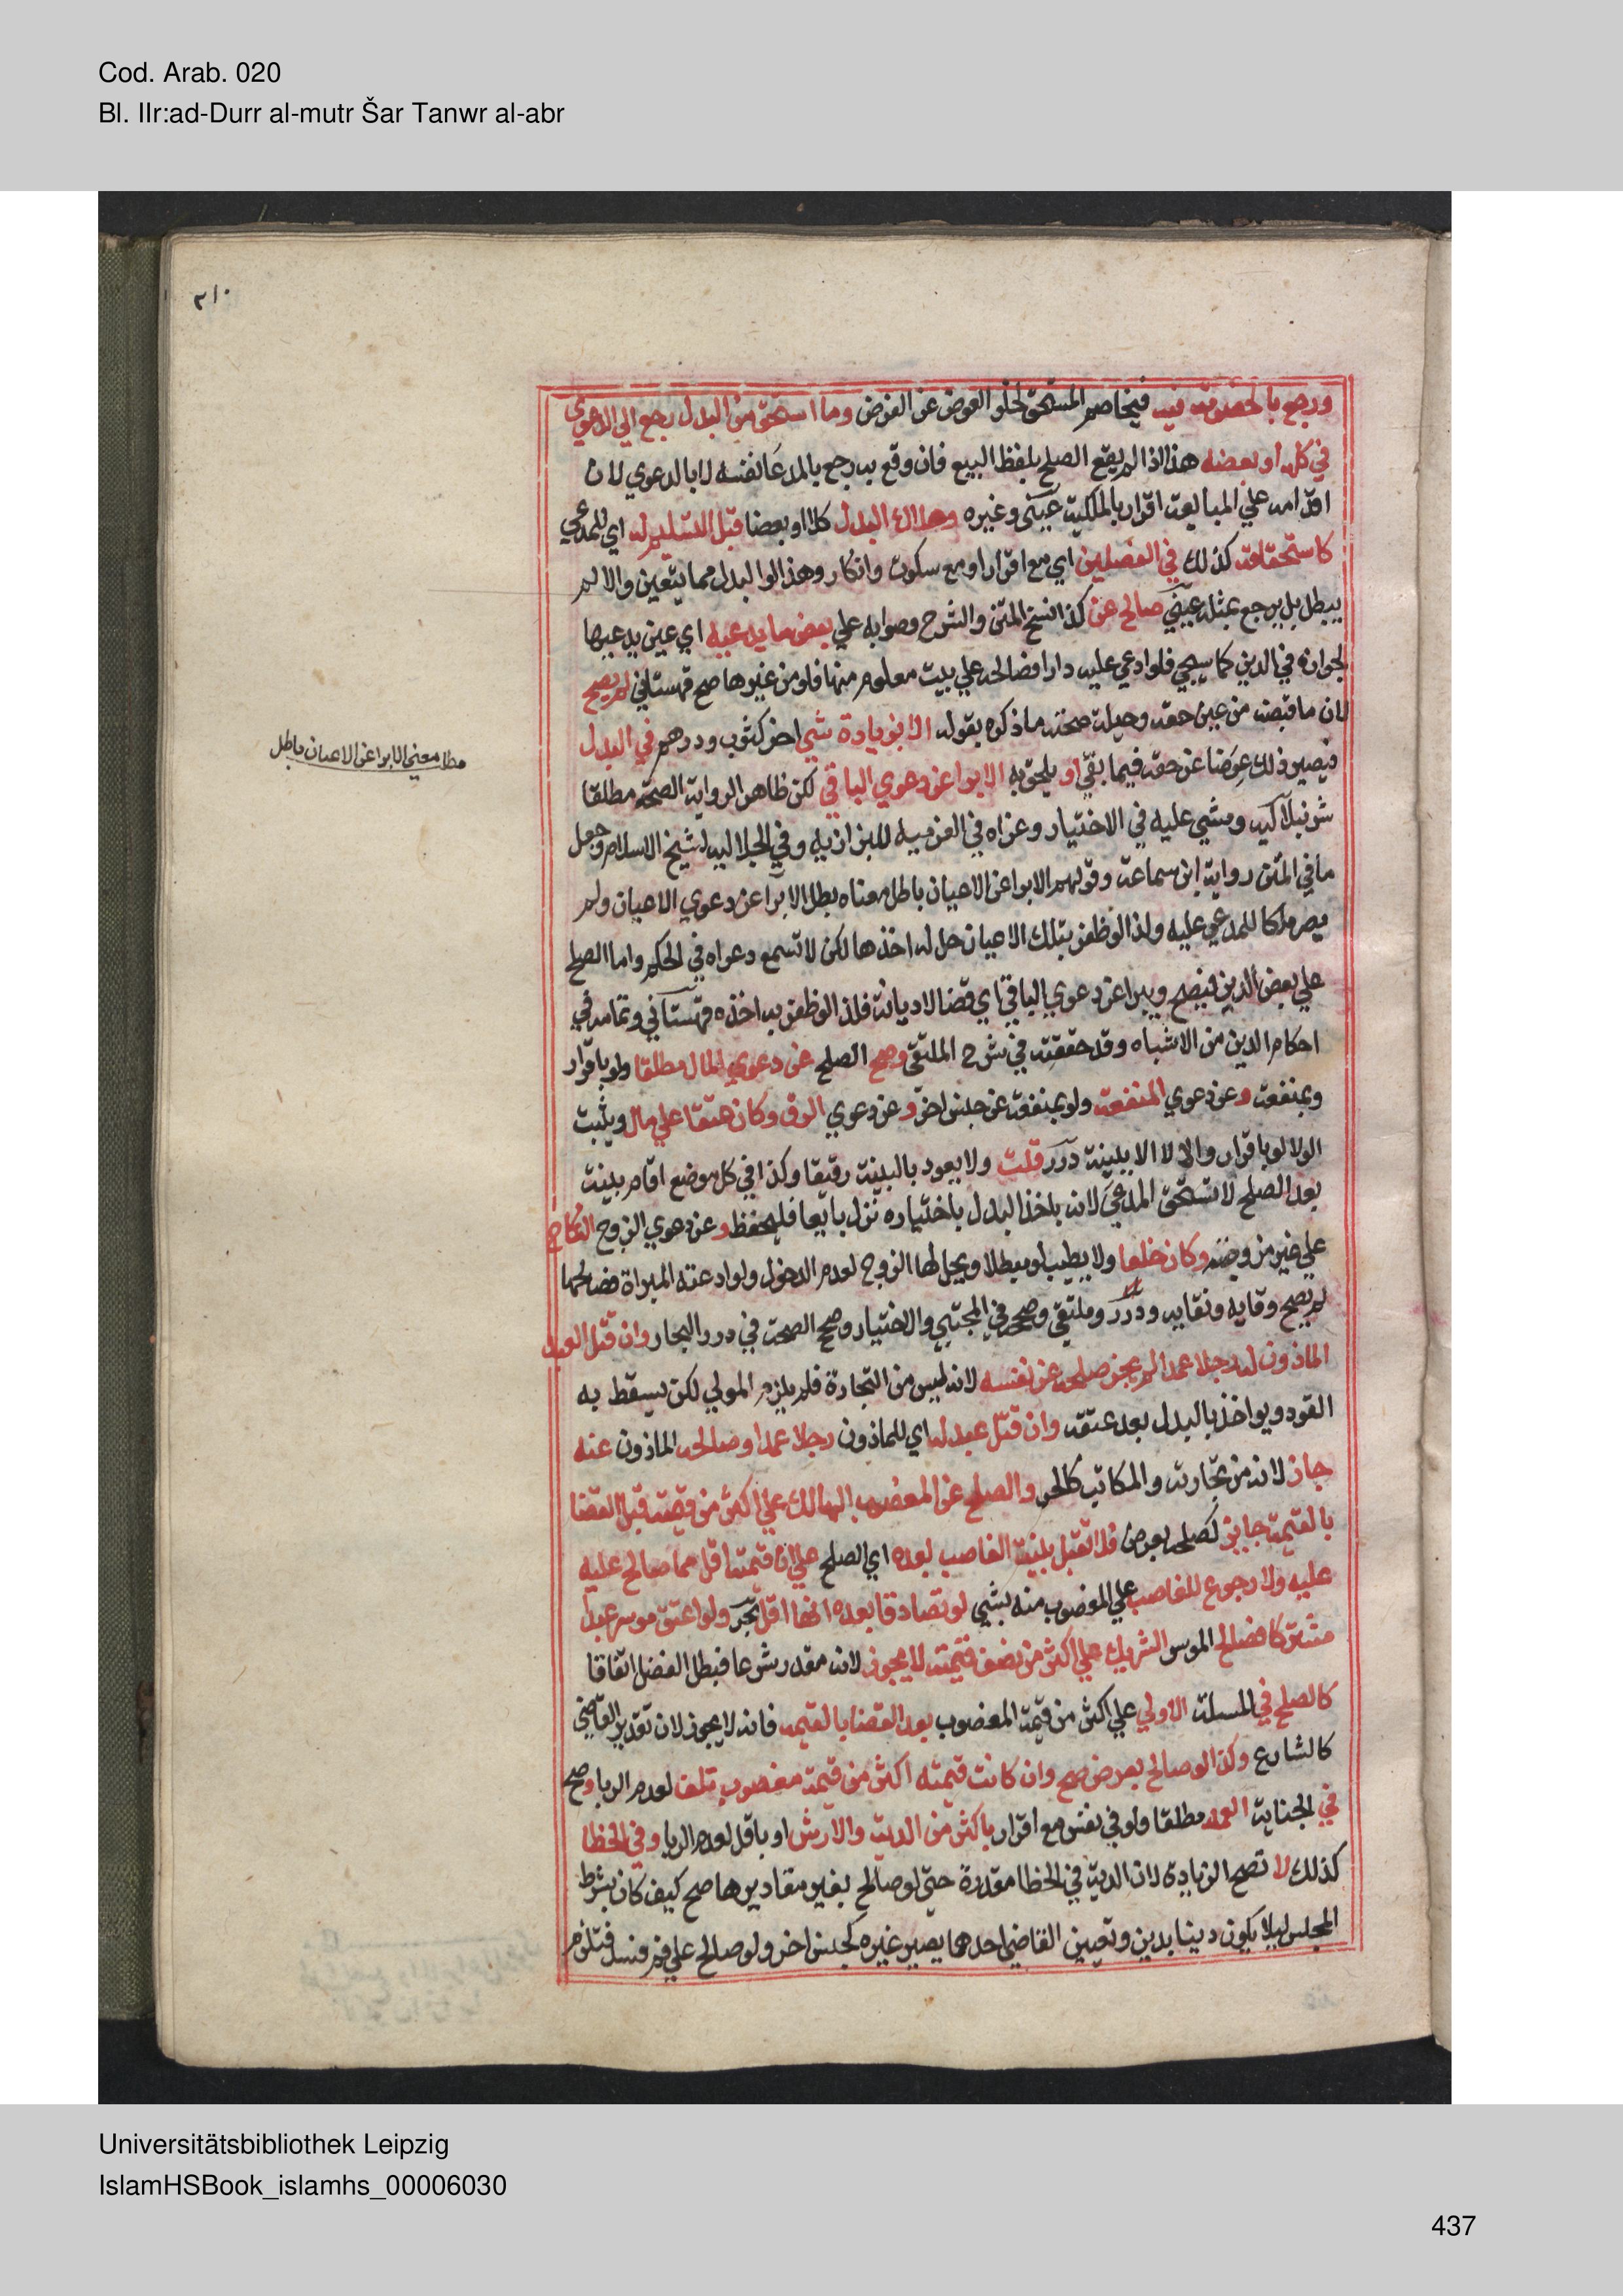 Cod. Arab. 020
Bl. IIr:ad-Durr al-mutr Šar Tanwr al-abr
٢١٠
ورجع بالخصومة فيه فيخاصم المستحق لخلو العوض عن العوض وما استحق من البدل رجع الي الدعوي
في كله او بعضه هذا اذا لم يقع الصلح بلفظ البيع فان وقع به رجع بالمدعا نفسه لا بالدعوي لان
اقدامه علي المبايعة اقرار بالملكية عيني وغيره وهلاك البدل كلا او بعضا قبل التسليم له اي للمدعي
كاستحقاقه كذلك في الفصلين اي مع اقرار او مع سكوت وانكار وهذا لو البدل مما يتعين والا لم
يبطل بل يرجع بمثله عيني صالح عن كذا نسخ المتن والشرح وصوابه علي بعض ما يدعيه اي عين يدعيها
لجوازه في الدين كما سيجي فلو ادعي عليه دارا فصالحه علي بيت معلوم منها فلو من غيرها صح قهستاني لم يصح
لان ما قبضه من عين حقه وحيلة صحته ما ذكره بقوله الا بزيادة شي اخر كثوب ودرهم في البدل
فيصير ذلك عوضا عن حقه فيما بقي او يلحق به الابرا عن دعوي الباقي لكن ظاهر الرواية الصحة مطلقا
مطلـ معني الابرا عن الاعيان باطل
شرنبلاليه ومشي عليه في الاختيار وعزاه في العزميه للبزازيه وفي الجلاليه لشيخ الاسلام وجعل
ما في المتن رواية ابن سماعة وقولهم الابرا عن الاعيان باطل معناه بطل الابرا عن دعوي الاعيان ولم
يصر ملكا للمدعي عليه ولذا لو ظفر بتلك الاعيان حل له اخذها لكن لا تسمع دعواه في الحكم واما الصلح
علي بعض الدين فيصح ويبرا عن دعوي الباقي اي قضا لا ديانة فلذا لو ظفر به اخذه قهستاني وتمامه في
احكام الدين من الاشباه وقد حققته في شرح الملتقي وصح الصلح عن دعوي المال مطلقا ولو باقرار
وبمنفعة وعن دعوي المنفعة ولو بمنفعة عن جنس اخر وعن دعوي الرق وكان عتقا علي مال ويثبت
الولا لو باقرار والا لا الا ببينة درر قلت ولا يعود بالبينة رقيقا وكذا في كل موضع اقام بينة
بعد الصلح لا يستحق المدعي لانه باخذ البدل باختياره نزل بايعا فليحفظ وعن دعوي الزوج النكاح
علي غير مزوجة وكان خلعا ولا يطيب لو مبطلا ويحل لها الزوج لعدم الدخول ولو ادعته المراة فصالحها
لم يصح وقايه ونقايه ودرر وملتقي وصححه في المجتبي والاختيار وصحح الصحة في درر البحار وان قتل العبد
الماذون له رجلا عمدا لم يجز صلحه عن نفسه لانه ليس من التجارة فلم يلزم المولي لكن يسقط به
القود ويواخذ بالبدل بعد عتقه وان قتل عبد له اي للماذون رجلا عمدا وصالحه الماذون عنه
جاز لانه من تجارته والمكاتب كالحر والصلح عن المغصوب الهالك علي اكثر من قيمته قبل القضا
بالقيمة جايز كصلحه بعرض فلا تقبل بينة الغاصب بعده اي الصلح علي ان قيمته اقل مما صالح عليه
عليه ولا رجوع للغاصب علي المغصوب منه بشي لو تصادقا بعده انها اقل بحر ولو اعتق موسر عبدا
مشتركا فصالح الموسر الشريك علي اكثر من نصف قيمته لا يجوز لانه مقدر شرعا فبطل الفضل اتفاقا
كالصلح في المسلة الاولي علي اكثر من قيمة المغصوب بعد القضا بالقيمه فانه لا يجوز لان تقدير القاضي
كالشارع وكذا لو صالح بعرض صح وان كانت قيمته اكثر من قيمة مغصوب تلف لعدم الربا وصح
في الجناية العمد مطلقا ولو في نفس مع اقرار باكثر من الدية والارش او باقل لعدم الربا وفي الخطا
كذلك لا تصح الزيادة لان الدية في الخطا مقدرة حتي لو صالح بغير مقاديرها صح كيف كان بشرط
المجلس ليلا يكون دينا بدين وتعيين القاضي احدها يصير غيره كجنس اخر ولو صالح علي خمر فسد فتلزم
Universitätsbibliothek Leipzig
IslamHSBook_islamhs_00006030
437